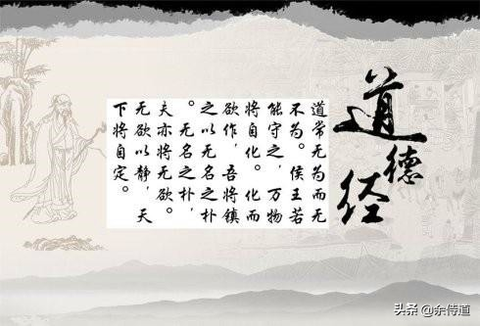 道德经
道常无为而无
不为。侯王若
能守之，万物
将自化。化而
欲作，吾将镇
之以无名之朴
。无名之朴，
夫亦将无欲。
无欲以静，天
下将自定。
头条 @余侍道